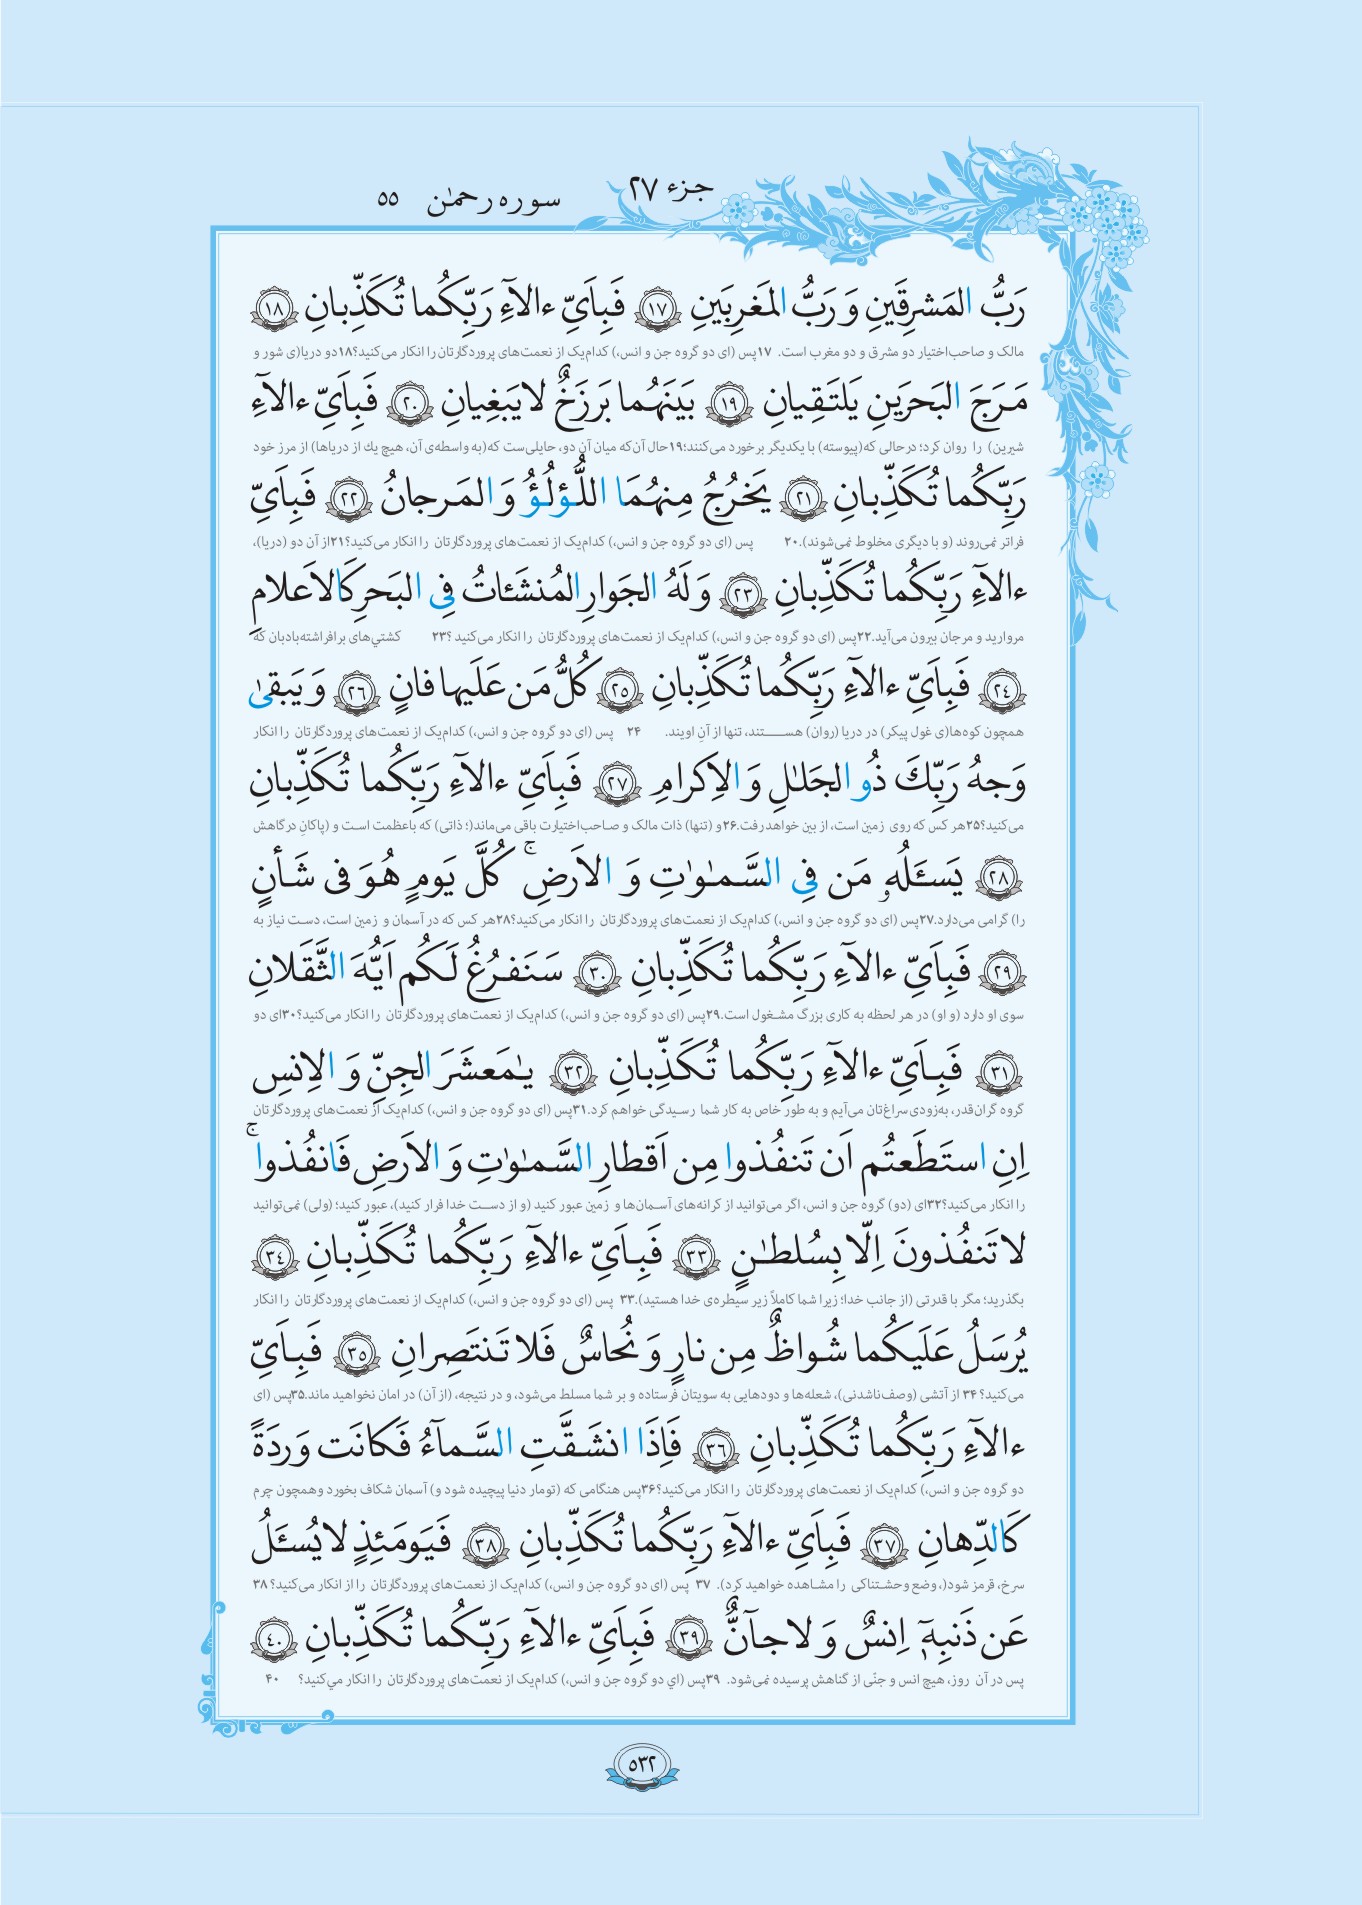 جزء ۲۷
سوره رحمٰن ۵۵
رَبُّ المَشرِقَينِ وَ رَبُّ المَغرِبَينِ ﴿١٧﴾ فَبِاَىِّ ءالآءِ رَبِّكُما تُكَذِّبانِ ﴿١٨﴾
مالک و صاحب‌اختیار دو مشرق و دو مغرب است. ۱۷پس (ای دو گروه جن و انس،) کدام‌یک از نعمت‌های پروردگارتان را انکار می‌کنید؟۱۸دو دریا(ی شور و
مَرَجَ البَحرَينِ يَلتَقِيانِ ﴿١٩﴾ بَينَهُما بَرزَخٌ لا يَبغِيانِ ﴿٢٠﴾ فَبِاَىِّ ءالآءِ
شیرین) را روان کرد؛ درحالی که(پیوسته) با یکدیگر برخورد می‌کنند؛۱۹حال آن‌که میان آن دو، حایلی‌ست که(به واسطه‌ی آن، هیچ یك از دریاها) از مرز خود
رَبِّكُما تُكَذِّبانِ ﴿٢١﴾ يَخرُجُ مِنهُمَا اللُّؤلُؤُ وَ المَرجانُ ﴿٢٢﴾ فَبِاَىِّ
فراتر نمی‌روند (و با دیگری مخلوط نمی‌شوند).۲۰ پس (ای دو گروه جن و انس،) کدام‌یک از نعمت‌های پروردگارتان را انکار می‌کنید؟۲۱از آن دو (دریا)،
ءالآءِ رَبِّكُما تُكَذِّبانِ ﴿٢٣﴾ وَ لَهُ الجَوارِ المُنشَئاتُ فِى البَحرِ كَالاَعلامِ
مروارید و مرجان بیرون می‌آید.۲۲پس (ای دو گروه جن و انس،) کدام‌یک از نعمت‌های پروردگارتان را انکار می‌کنید ؟۲۳ کشتي‌های برافراشته‌بادبان که
﴿٢٤﴾ فَبِاَىِّ ءالآءِ رَبِّكُما تُكَذِّبانِ ﴿٢٥﴾ كُلُّ مَن عَلَيها فانٍ ﴿٢٦﴾ وَ يَبقىٰ
همچون کوه‌ها(ی غول پیکر) در دریا (روان) هســـــتند، تنها از آنِ اویند. ۲۴ پس (ای دو گروه جن و انس،) کدام‌یک از نعمت‌های پروردگارتان را انکار
وَجهُ رَبِّكَ ذُو الجَلٰلِ وَ الاِكرامِ ﴿٢٧﴾ فَبِاَىِّ ءالآءِ رَبِّكُما تُكَذِّبانِ
می‌کنید؟۲۵هر کس که روی زمین است، از بین خواهدرفت.۲۶و (تنها) ذات مالک و صاحب‌اختیارت باقی می‌ماند(؛ ذاتی) که باعظمت است و (پاکانِ درگاهش
﴿٢٨﴾ يَسـَٔلُهُۥ مَن فِى السَّمٰوٰتِ وَ الاَرضِ ۚ كُلَّ يَومٍ هُوَ فى شَأنٍ
را) گرامی می‌دارد.۲۷پس (ای دو گروه جن و انس،) کدام‌یک از نعمت‌های پروردگارتان را انکار می‌کنید؟۲۸هر کس که در آسمان و زمین است، دست نیاز به
﴿٢٩﴾ فَبِاَىِّ ءالآءِ رَبِّكُما تُكَذِّبانِ ﴿٣٠﴾ سَنَفرُغُ لَكُم اَيُّهَ الثَّقَلانِ
سوی او دارد (و او) در هر لحظه به کاری بزرگ مشـغول است.۲۹پس (ای دو گروه جن و انس،) کدام‌یک از نعمت‌های پروردگارتان را انکار می‌کنید؟۳۰ای دو
﴿٣١﴾ فَبِاَىِّ ءالآءِ رَبِّكُما تُكَذِّبانِ ﴿٣٢﴾ يٰمَعشَرَ الجِنِّ وَ الاِنسِ
گروه گران‌قدر، به‌زودی سراغ‌تان می‌آیم و به طور خاص به کار شما رسـیدگی خواهم کرد.۳۱پس (ای دو گروه جن و انس،) کدام‌یک از نعمت‌های پروردگارتان
اِنِ استَطَعتُم اَن تَنفُذوا مِن اَقطارِ السَّمٰوٰتِ وَ الاَرضِ فَانفُذوا ۚ
را انکار می‌کنید؟۳۲ای (دو) گروه جن و انس، اگر می‌توانید از کرانه‌های آسـمان‌ها و زمین عبور کنید (و از دسـت خدا فرار کنید)، عبور کنید؛ (ولی) نمی‌توانید
لا تَنفُذونَ اِلّا بِسُلطٰنٍ ﴿٣٣﴾ فَبِاَىِّ ءالآءِ رَبِّكُما تُكَذِّبانِ ﴿٣٤﴾
بگذرید؛ مگر با قدرتی (از جانب خدا؛ زیرا شما کاملاً زیر سیطره‌ی خدا هستید).۳۳ پس (ای دو گروه جن و انس،) کدام‌یک از نعمت‌های پروردگارتان را انکار
يُرسَلُ عَلَيكُما شُواظٌ مِن نارٍ وَ نُحاسٌ فَلا تَنتَصِرانِ ﴿٣٥﴾ فَبِاَىِّ
می‌کنید؟ ۳۴ از آتشی (وصف‌ناشدنی)، شعله‌ها و دودهایی به سویتان فرستاده و بر شما مسلط می‌شود، و در نتیجه، (از آن) در امان نخواهید ماند.۳۵پس (ای
ءالآءِ رَبِّكُما تُكَذِّبانِ ﴿٣٦﴾ فَاِذَا انشَقَّتِ السَّمآءُ فَكانَت وَردَةً
دو گروه جن و انس،) کدام‌یک از نعمت‌های پروردگارتان را انکار می‌کنید؟۳۶پس هنگامی که (تومار دنیا پیچیده شود و) آسمان شکاف بخورد وهمچون چرم
كَالدِّهانِ ﴿٣٧﴾ فَبِاَىِّ ءالآءِ رَبِّكُما تُكَذِّبانِ ﴿٣٨﴾ فَيَومَئِذٍ لا يُسـَٔلُ
سرخ، قرمز شود(، وضع وحشـتناکی را مشـاهده خواهید کرد). ۳۷ پس (ای دو گروه جن و انس،) کدام‌یک از نعمت‌های پروردگارتان را از انکار می‌کنید؟ ۳۸
عَن ذَنبِهٖٓ اِنسٌ وَ لا جآنٌّ ﴿٣٩﴾ فَبِاَىِّ ءالآءِ رَبِّكُما تُكَذِّبانِ ﴿٤٠﴾
پس در آن روز، هیچ انس و جنّی از گناهش پرسیده نمی‌شود. ۳۹پس (اي دو گروه جن و انس،) کدام‌یک از نعمت‌های پروردگارتان را انکار مي‌کنید؟ ۴۰
۵۳۲